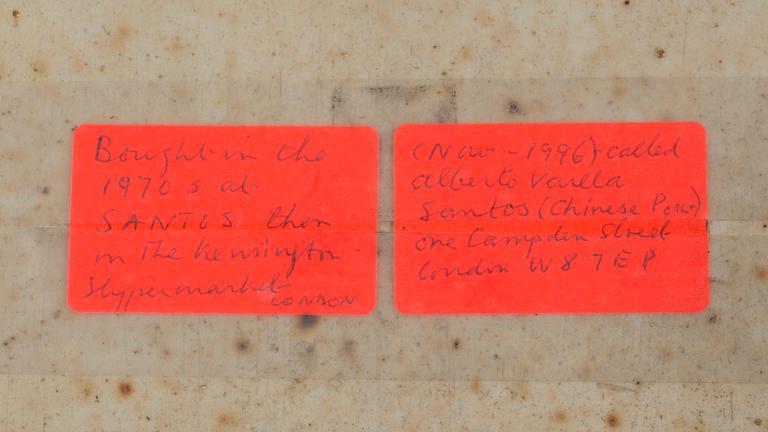 Bought in the
1970s at
SANTOS then
in The Kensington
Hypermarket
LONDON
(Now - 1996) called
alberto Varela
Santos (Chinese Porc)
one Campden Street
London W8 7EP